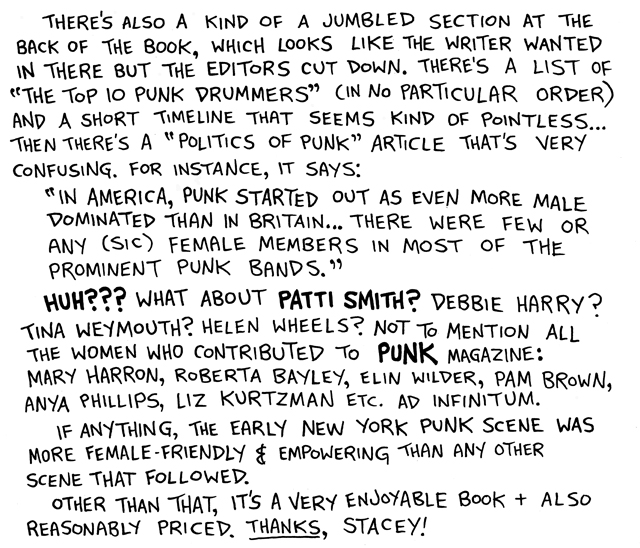 THERE'S ALSO A KIND OF A JUMBLED SECTION AT THE
BACK OF THE BOOK, WHICH LOOKS LIKE THE WRITER WANTED
IN THERE BUT THE EDITORS CUT DOWN. THERE'S A LIST OF
"THE TOP 10 PUNK DRUMMERS" (IN NO PARTICULAR ORDER)
AND A SHORT TIMELINE THAT SEEMS KIND OF POINTLESS...
THEN THERE'S A "POLITICS OF PUNK" ARTICLE THAT'S VERY
CONFUSING. FOR INSTANCE, IT SAYS:
"IN AMERICA, PUNK STARTED OUT AS EVEN MORE MALE
DOMINATED THAN IN BRITAIN... THERE WERE FEW OR
ANY (SIC) FEMALE MEMBERS IN MOST OF THE
PROMINENT PUNK BANDS."
HUH??? WHAT ABOUT PATTI SMITH? DEBBIE HARRY?
TINA WEYMOUTH? HELEN WHEELS? NOT TO MENTION ALL
THE WOMEN WHO CONTRIBUTED TO PUNK MAGAZINE:
MARY HARRON, ROBERTA BAYLEY, ELIN WILDER, PAM BROWN,
ANYA PHILLIPS, LIZ KURTZMAN ETC. AD INFINITUM.
IF ANYTHING, THE EARLY NEW YORK PUNK SCENE WAS
MORE FEMALE-FRIENDLY & EMPOWERING THAN ANY OTHER
SCENE THAT FOLLOWED.
OTHER THAN THAT, IT'S A VERY ENJOYABLE BOOK + ALSO
REASONABLY PRICED. THANKS, STACEY!